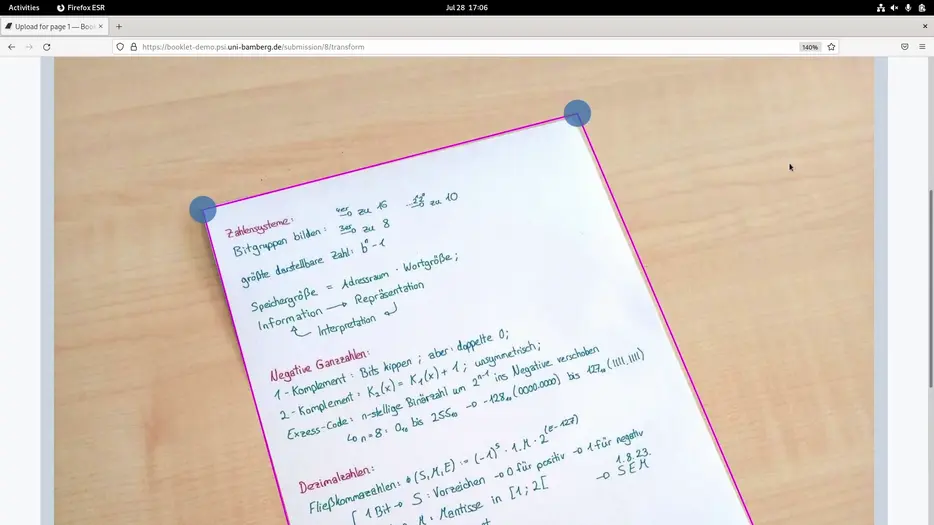 Activities
Firefox ESR
Jul 28 17:06
Upload for page 1 — Book
https://booklet-demo.psi.uni-bamberg.de/submission/8/transform
140%
Zahlensysteme:
Bitgruppen bilden: 4er→ zu 16
3er→ zu 8 zu 10
größte darstellbare Zahl: bⁿ-1
Speichergröße = Adressraum · Wortgröße;
Information → Repräsentation
Interpretation
Negative Ganzzahlen:
1-Komplement: Bits kippen; aber: doppelte 0;
2-Komplement: K₂(x) = K₁(x) + 1; unsymmetrisch;
Exzess-Code: n-stellige Binärzahl um 2ⁿ⁻¹ ins Negative verschoben
↳ n=8: 0₁₀ bis 255₁₀ → -128₁₀ (0000.0000) bis 127₁₀ (1111.1111)
Dezimalzahlen:
Fließkommazahlen: (S,M,E) := (-1)ˢ · 1.M · 2^(E-127)
1 Bit → S: Vorzeichen → 0 für positiv → 1 für negativ
M: Mantisse in [1;2[ → 1.8.23.
S E M